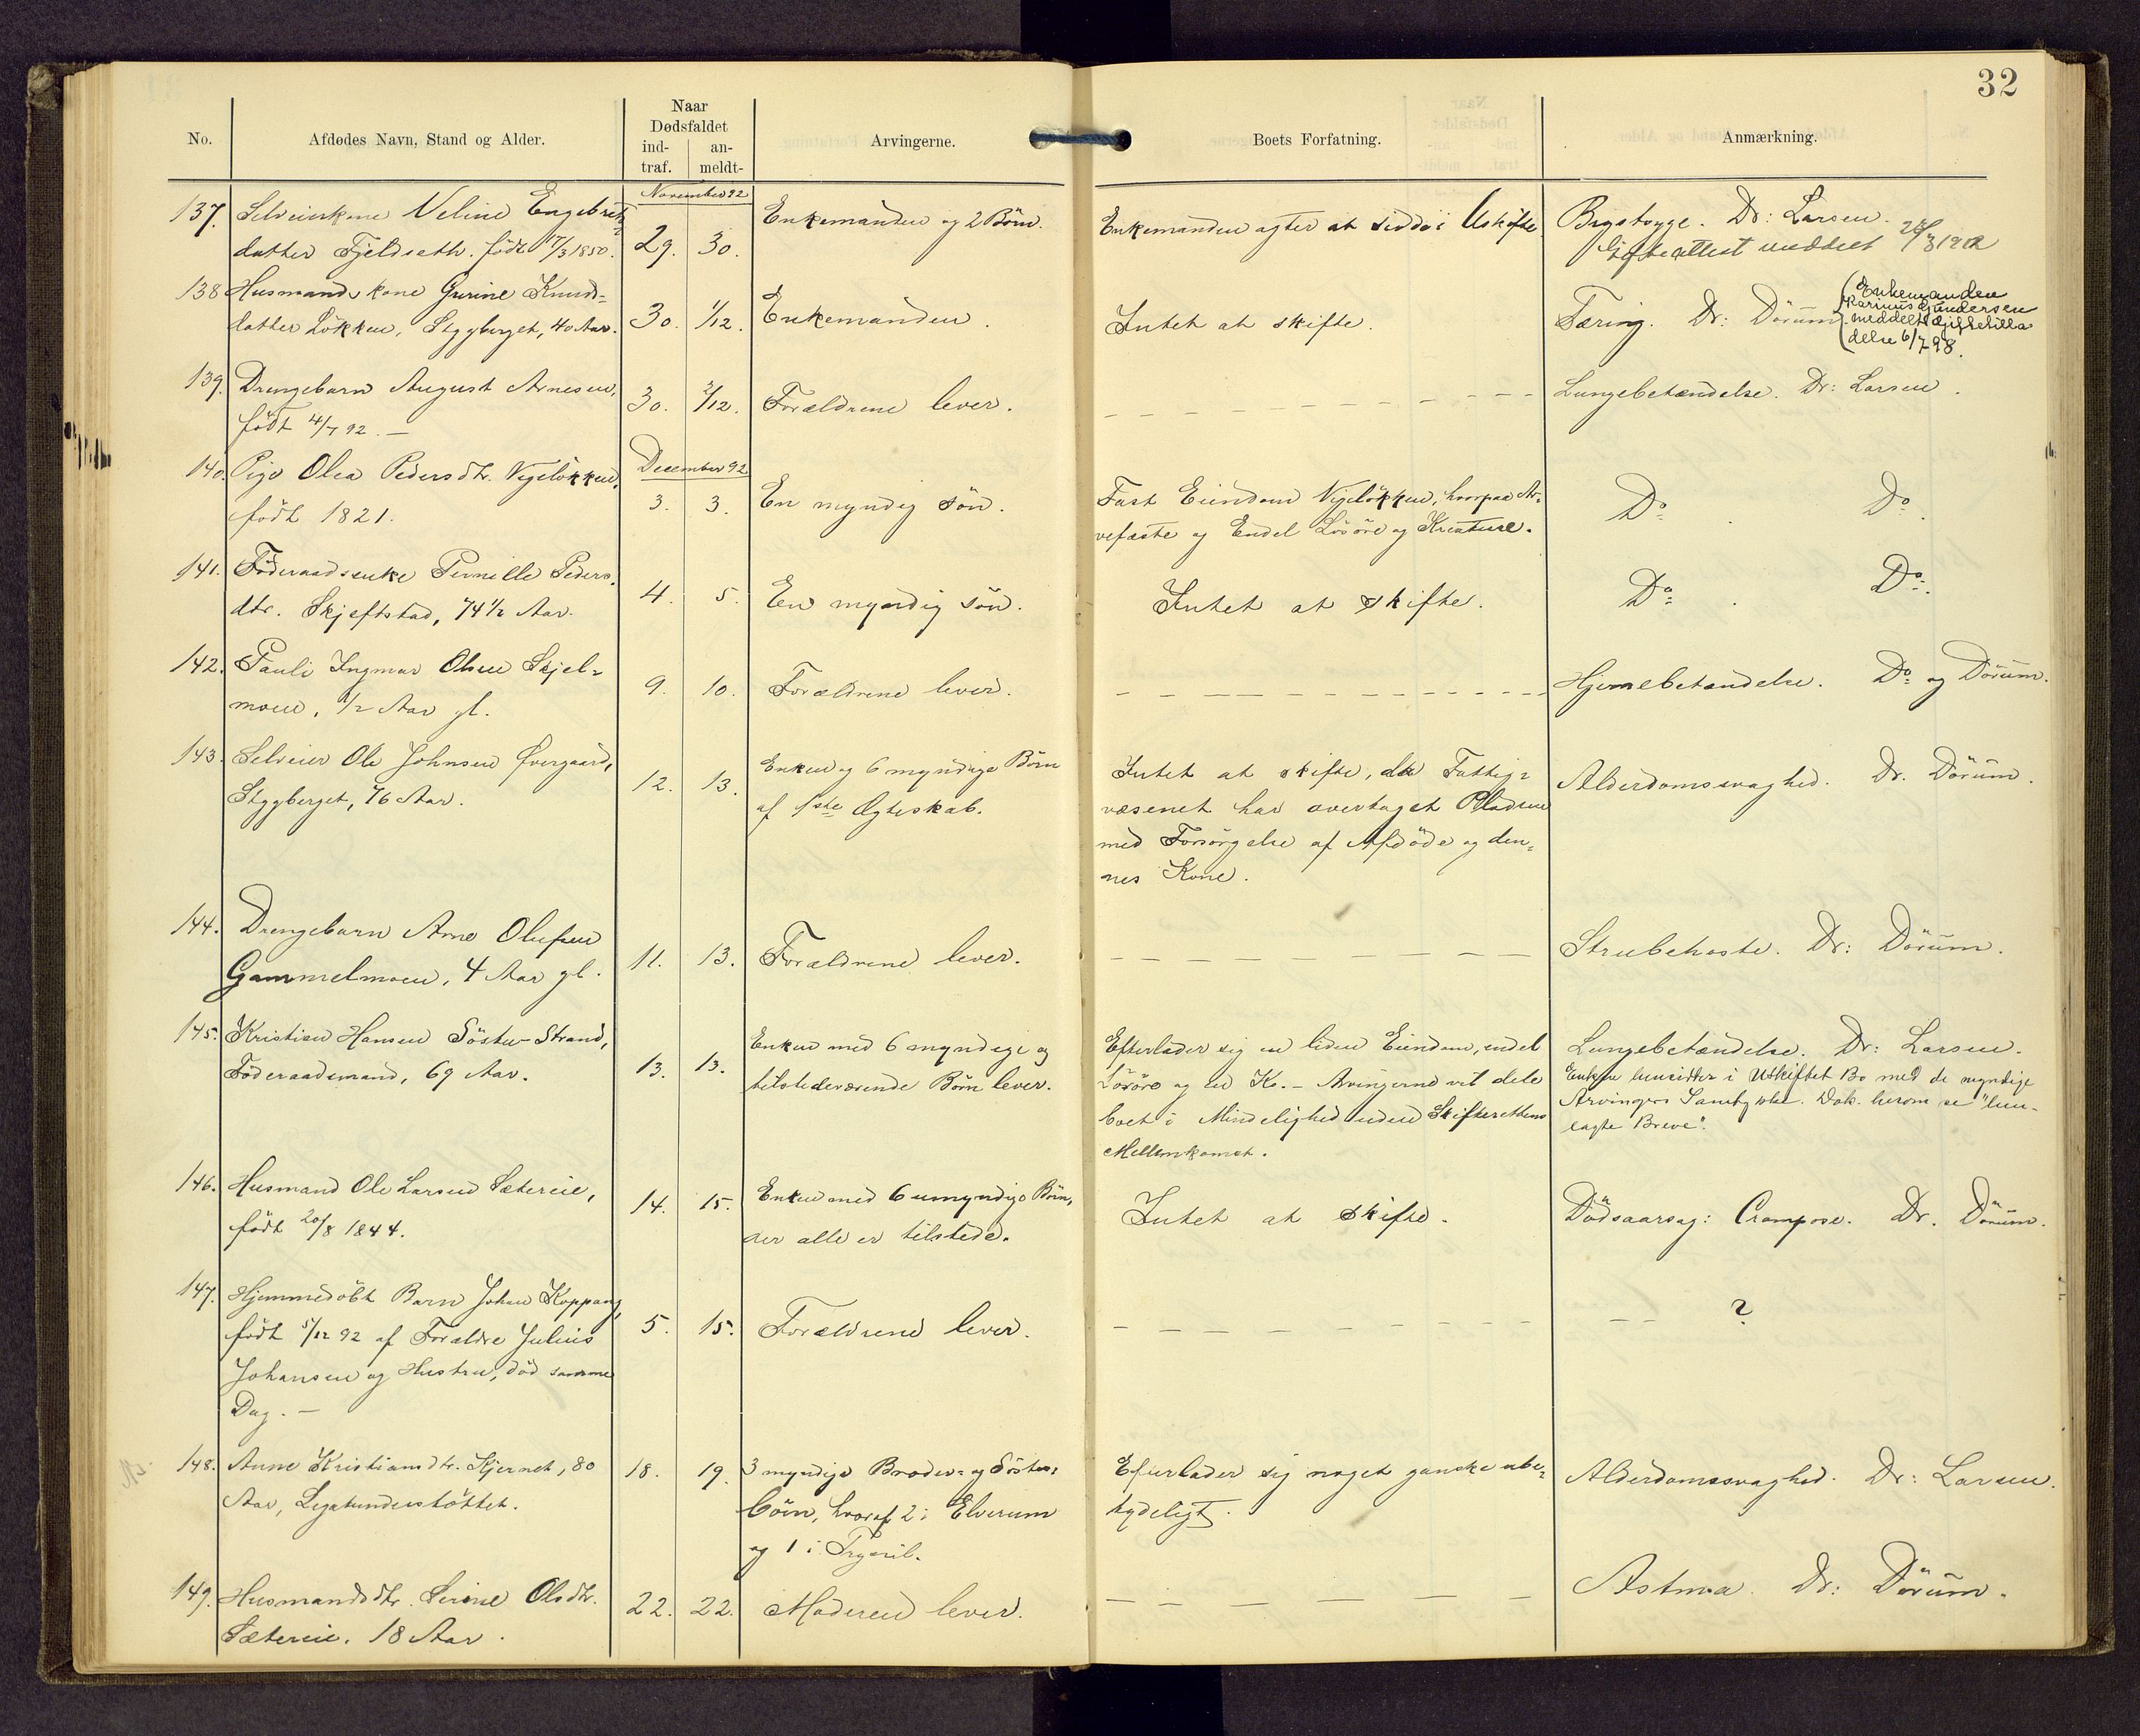 32
No.
Afdødes Navn, Stand og Alder.
Naar
Dødsfaldet
ind-
traf.
an-
meldt-
Arvingerne.
Boets Forfatning.
Anmærkning.
November 92
137. Selveierkone Veline Engebrets-
datter Fjeldseth. født 17/3 1850.
29. 30.
Enkemanden og 2 Børn.
Enkemanden agter at sidde i Uskifte
Brystsyge. Dr: Larsen.
Gifteattest meddelt
138 Husmandskone Gurine Knuds-
datter Løkken, Styggberget, 40 Aar.
30. 1/12.
Enkemanden.
Intet at skifte.
Tæring. Dr: Dørum.
(Enkemanden
meddelt Ægteskabstilla
delse 6/7 98.
139. Drengebarn August Arnesen,
født 4/7 92. –
30. 2/12.
Forældrene lever.
Lungebetændelse. Dr: Larsen.
December 92
140. Pige Olea Pedersdtr. Vegeløkken,
født 1821.
3. 3.
En myndig søn.
Fast Eiendom Vegeløkken, hvorpaa Ar-
vefæste og Endel Løsøre og Kreature.
Do Do
141. Føderaadsenke Pernille Peders.
dtr. Skjeftstad, 74 1/2 Aar.
4. 5.
En myndig søn.
Intet at skifte.
Do Do
142. Pauli Ingmar Olsen Skjel-
moen, 1/2 Aar gl.
9. 10.
Forældrene lever.
Hjernebetændelse. Do og Dørum.
143. Selveier Ole Johnsen Øvergaard,
Styggberget, 76 Aar.
12. 13.
Enken og 6 myndige Børn
af 1ste Ægteskab.
Intet at skifte, da Fattig-
væsenet har overtaget Pladsen
med Forsørgelse af Afdøde og den-
nes Kone.
Alderdomssvaghed. Dr. Dørum.
144. Drengebarn Arne Olufsen
Gammelmoen, 4 Aar gl.
11. 13.
Forældrene lever.
Strubehoste. Dr: Dørum.
145. Kristian Hansen Søstu-Strand,
Føderaadsmand, 69 Aar.
13. 13.
Enken med 6 myndige og
tilstedeværende Børn lever.
Efterlader sig en liden Eiendom, endel
Løsøre og en Ko. – Arvingerne vil dele
boet i Mindelighed uden Skifterettens
Mellemkomst.
Lungebetændelse. Dr: Larsen.
Enken hensidder i Uskiftet Bo med de myndige
Arvingers Samtykke. Dok. herom se "hen-
lagte Breve".
146. Husmand Ole Larsen Sætereie,
født 20/8 1844.
14. 15.
Enken med 6 umyndige Børn,
der alle er tilstede.
Intet at skifte.
Dødsaarsag: Crampose. Dr. Dørum.
147. Hjemmedøbt Barn Johan Koppang,
født 5/12 92 af Forældre Julius
Johansen og Hustru, død samme
Dag. –
5. 15.
Forældrene lever.
?
148. Anne Kristiansdtr. Kjernet, 80
Aar, Legatunderstøttet.
18. 19.
3 myndige Broder- og Søster-
børn, hvoraf 2 i Elverum
og 1 i Trysil.
Efterlader sig noget ganske ube-
tydeligt.
Alderdomssvaghed. Dr: Larsen.
149. Husmandsdtr. Serine Olsdtr.
Sætereie. 18 Aar.
22. 22.
Moderen lever.
Astma. Dr: Dørum.